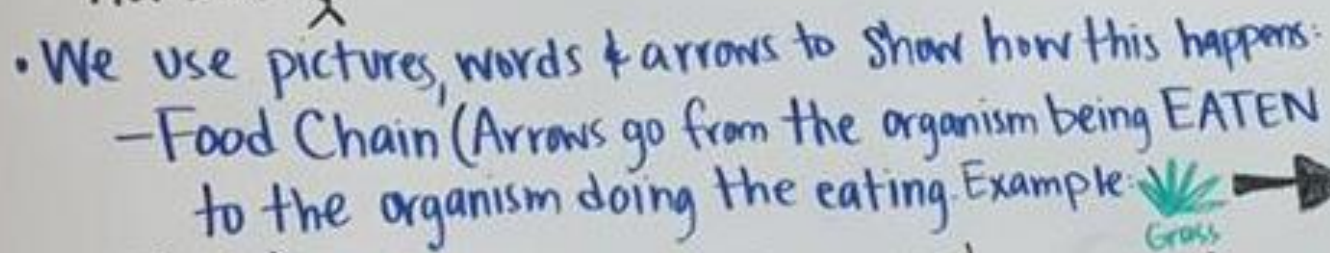 • We use pictures, words & arrows to show how this happens:
- Food Chain (Arrows go from the organism being EATEN
to the organism doing the eating. Example:
Grass